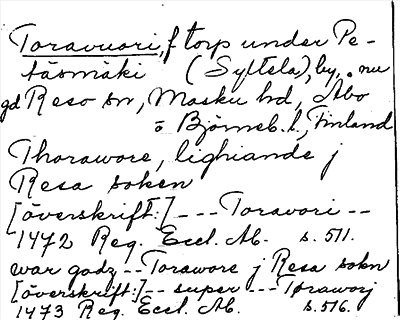 Toravuori, f torp under Pe-
täsmäki (Syltela), by, nu
gd Reso sn, Masku hd, Åbo
o Björneb. l., Finland
Thorawore, lighiande j
Resa soken
[överskrift:] --- Toravori --
1472 Reg. Eccl. Ab. s. 511.
war godz -- Torawore j Resa sokn
[överskrift:] -- super -- Toraworj
1473 Reg. Eccl. Ab. s. 516.